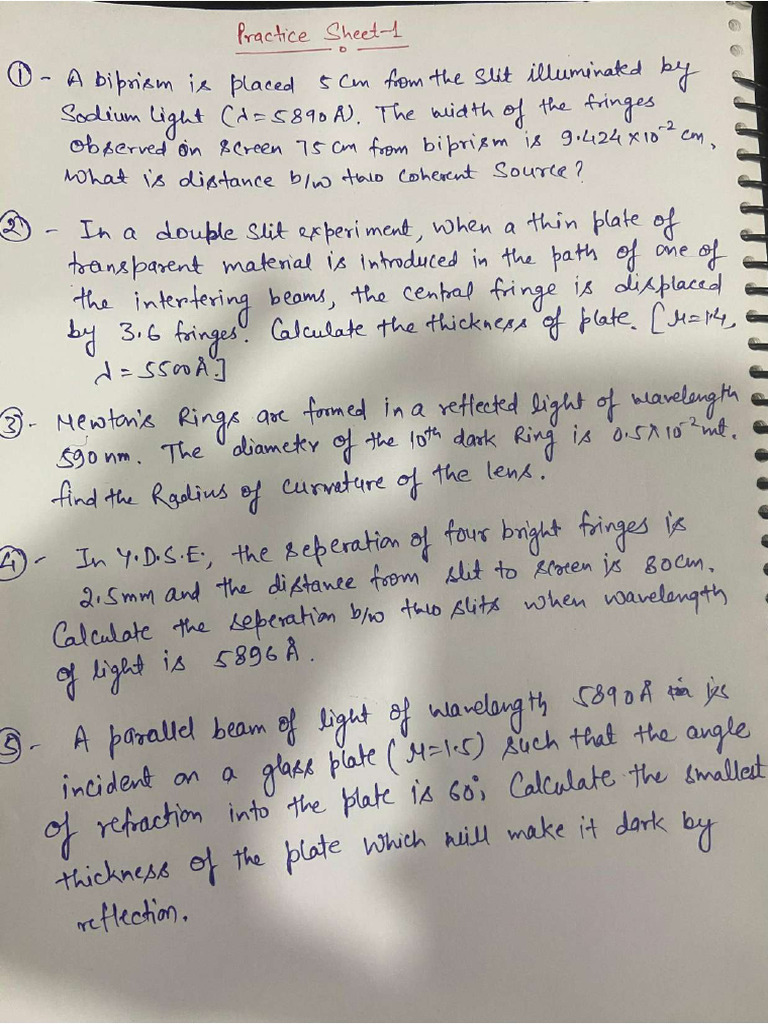 Practice Sheet-1
① - A biprism is placed 5 cm from the slit illuminated by
Sodium light (λ=5890Å). The width of the fringes
observed on screen 75 cm from biprism is 9.424×10⁻² cm,
what is distance b/w two coherent source?
② - In a double slit experiment, when a thin plate of
transparent material is introduced in the path of one of
the interfering beams, the central fringe is displaced
by 3.6 fringes. Calculate the thickness of plate. [μ=1.4,
λ = 5500Å.]
③ - Newton's Rings are formed in a reflected light of wavelength
590 nm. The diameter of the 10th dark Ring is 0.5×10⁻² mt.
find the Radius of curvature of the lens.
④ - In Y.D.S.E., the seperation of four bright fringes is
2.5mm and the distance from slit to screen is 80cm.
Calculate the seperation b/w two slits when wavelength
of light is 5896Å.
⑤ - A parallel beam of light of wavelength 5890Å is
incident on a glass plate (μ=1.5) such that the angle
of refraction into the plate is 60°, Calculate the smallest
thickness of the plate which will make it dark by
reflection.